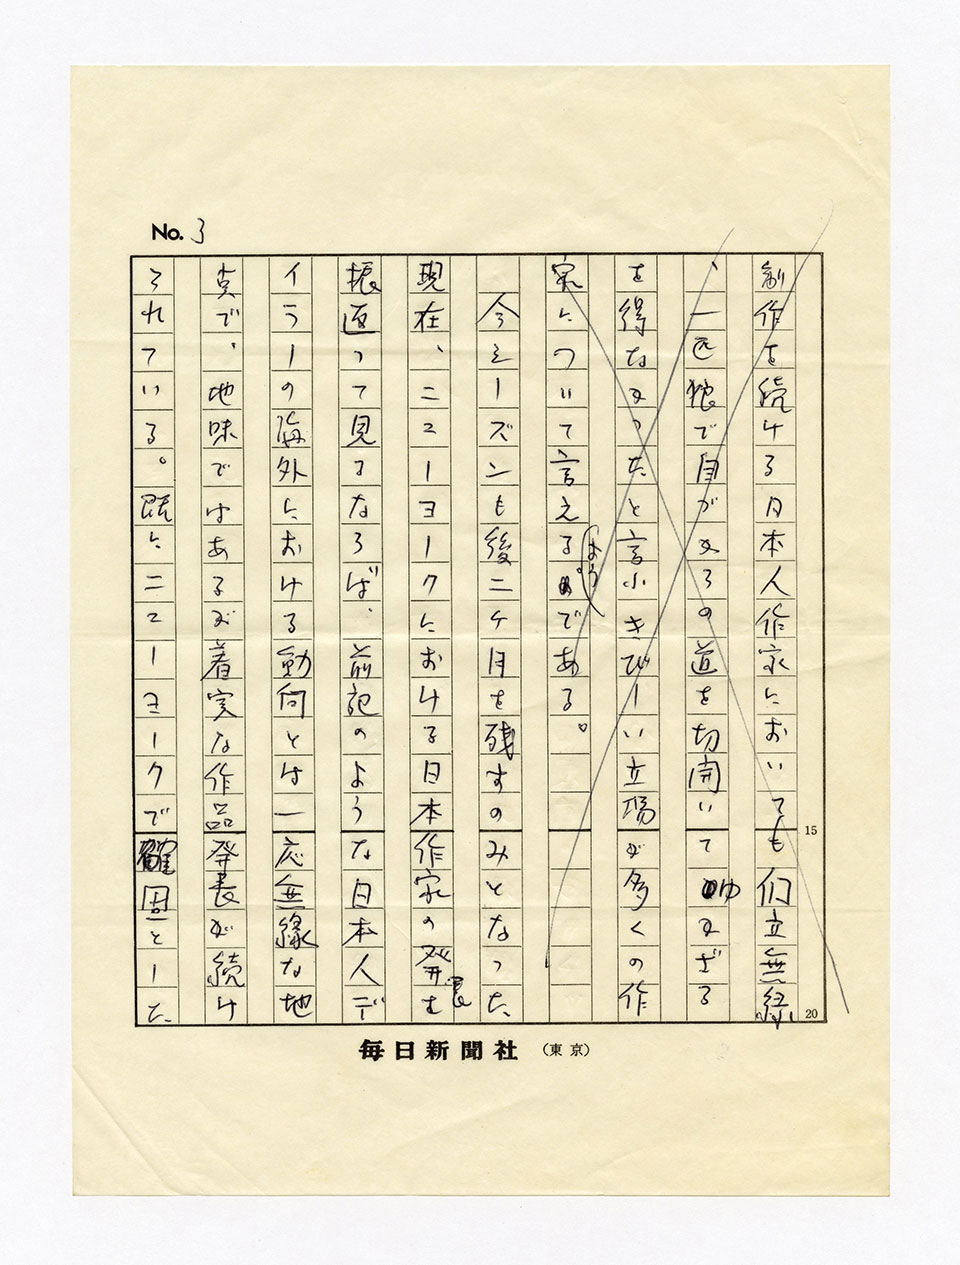 No. 3
制作を続ける日本人作家においても们立無縁
、一匹狼で自がからの道を切開いてゆかざる
を得なかったと言小きびしい立場が多くの作
家について言えるようである。
今シーズンも後二ヶ月を残すのみとなった
現在、ニューヨークにおける日本作家の発表を
振返って見るならば、前記のような日本人デ
イラーの海外における動向とは一応無縁な地
点で、地味ではあるが着実な作品発表が続け
られている。既にニューヨークで確固とした
15
20
毎日新聞社 (東京)